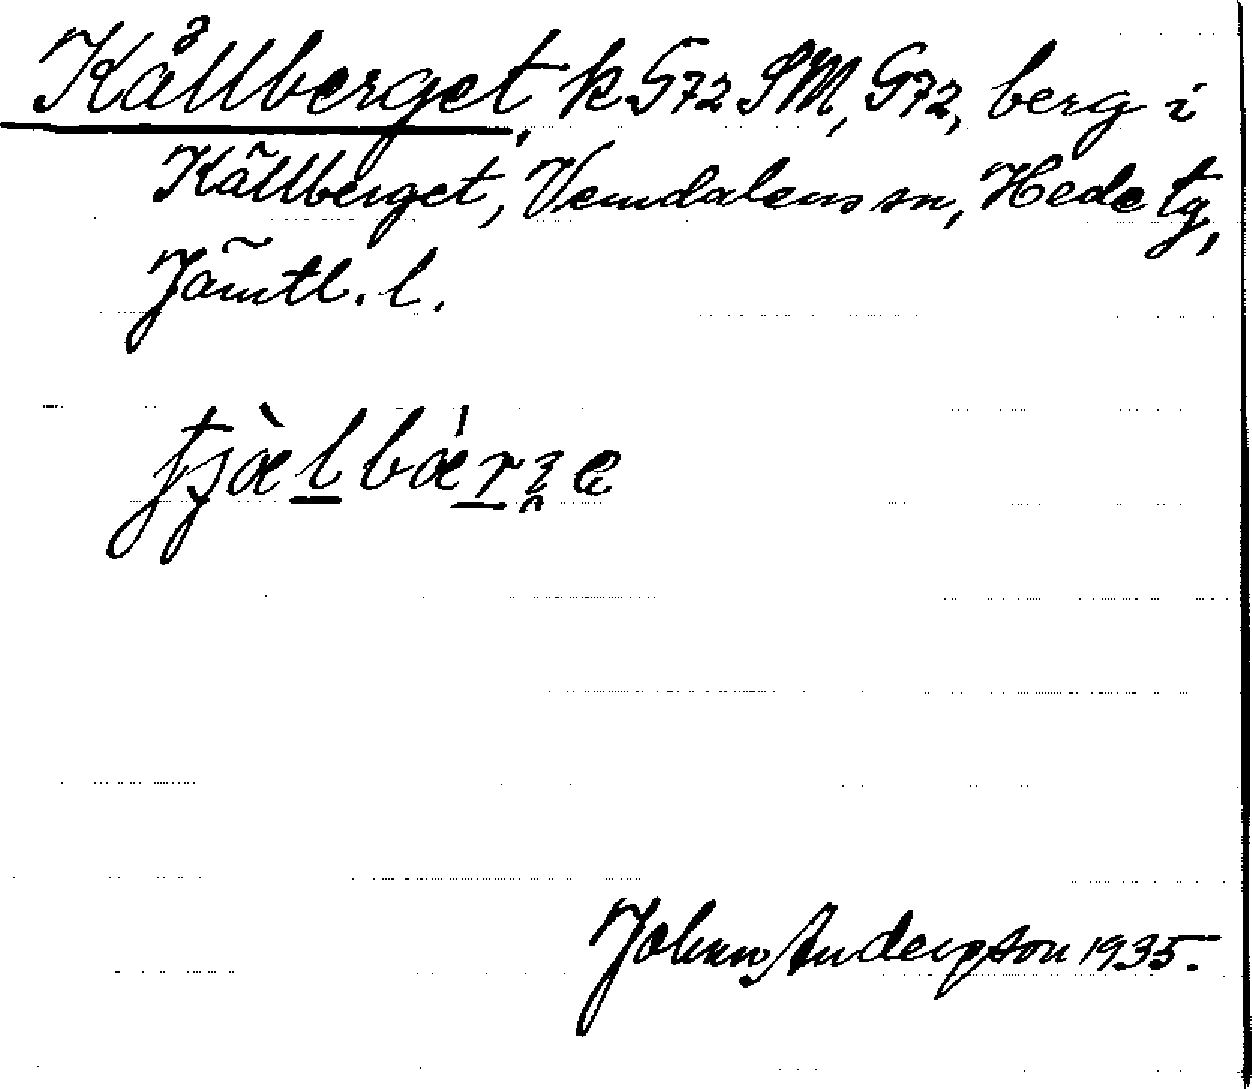 Källberget, k G72 SM, G72, berg i
Källberget, Vemdalens sn, Hede tg,
Jämtl. l.
Johan Anderson 1935.